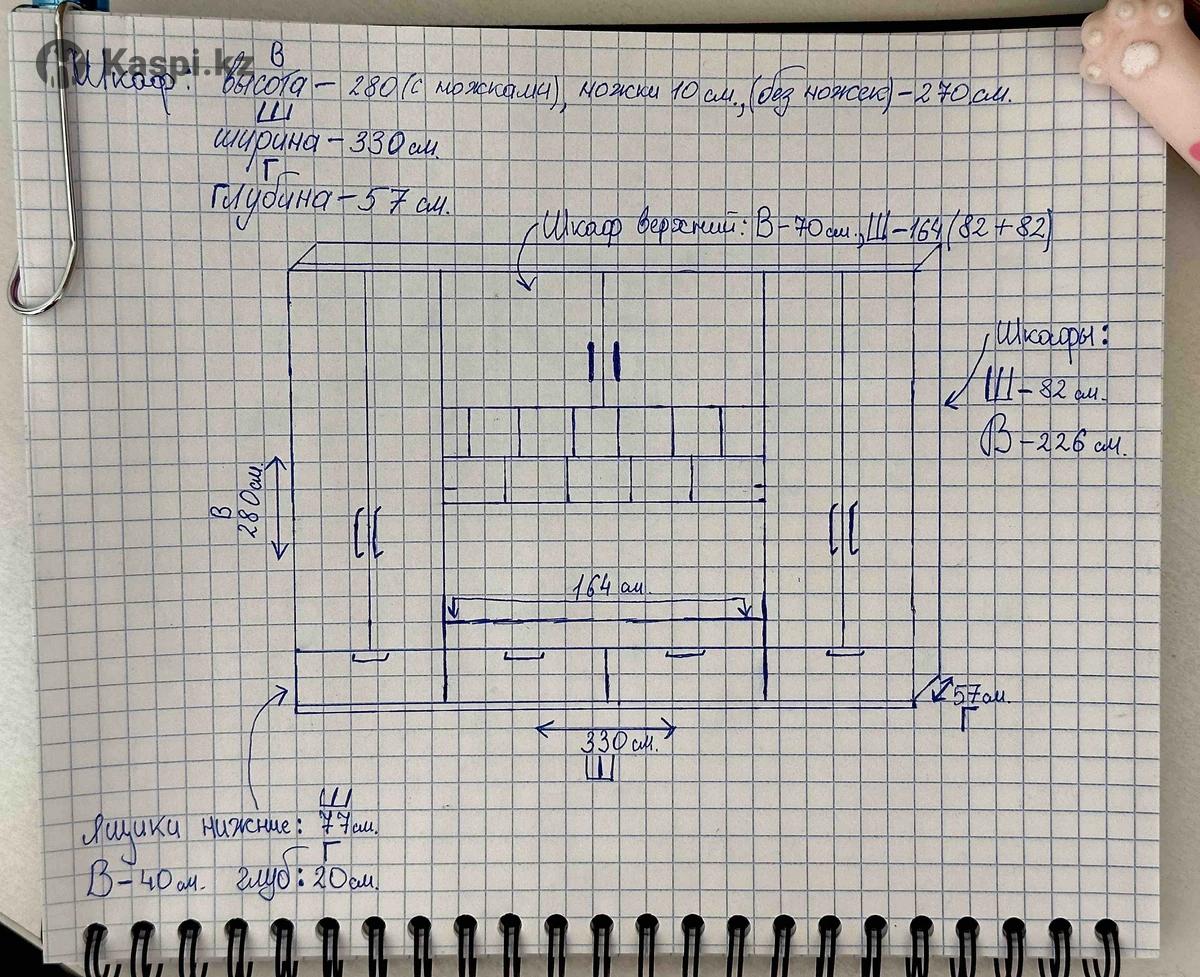 Kaspi.kz
В
Шкаф: высота – 280 (с ножками), ножки 10 см., (без ножек) – 270 см.
Ш
ширина – 330 см.
Г
глубина – 57 см.
Шкаф верхний: В – 70 см., Ш – 164 (82 + 82)
Шкафы:
Ш – 82 см.
В – 226 см.
В
280 см.
164 см.
57 см.
Г
330 см.
Ш
Ш
Ящики нижние: 77 см.
Г
В – 40 см. глуб: 20 см.